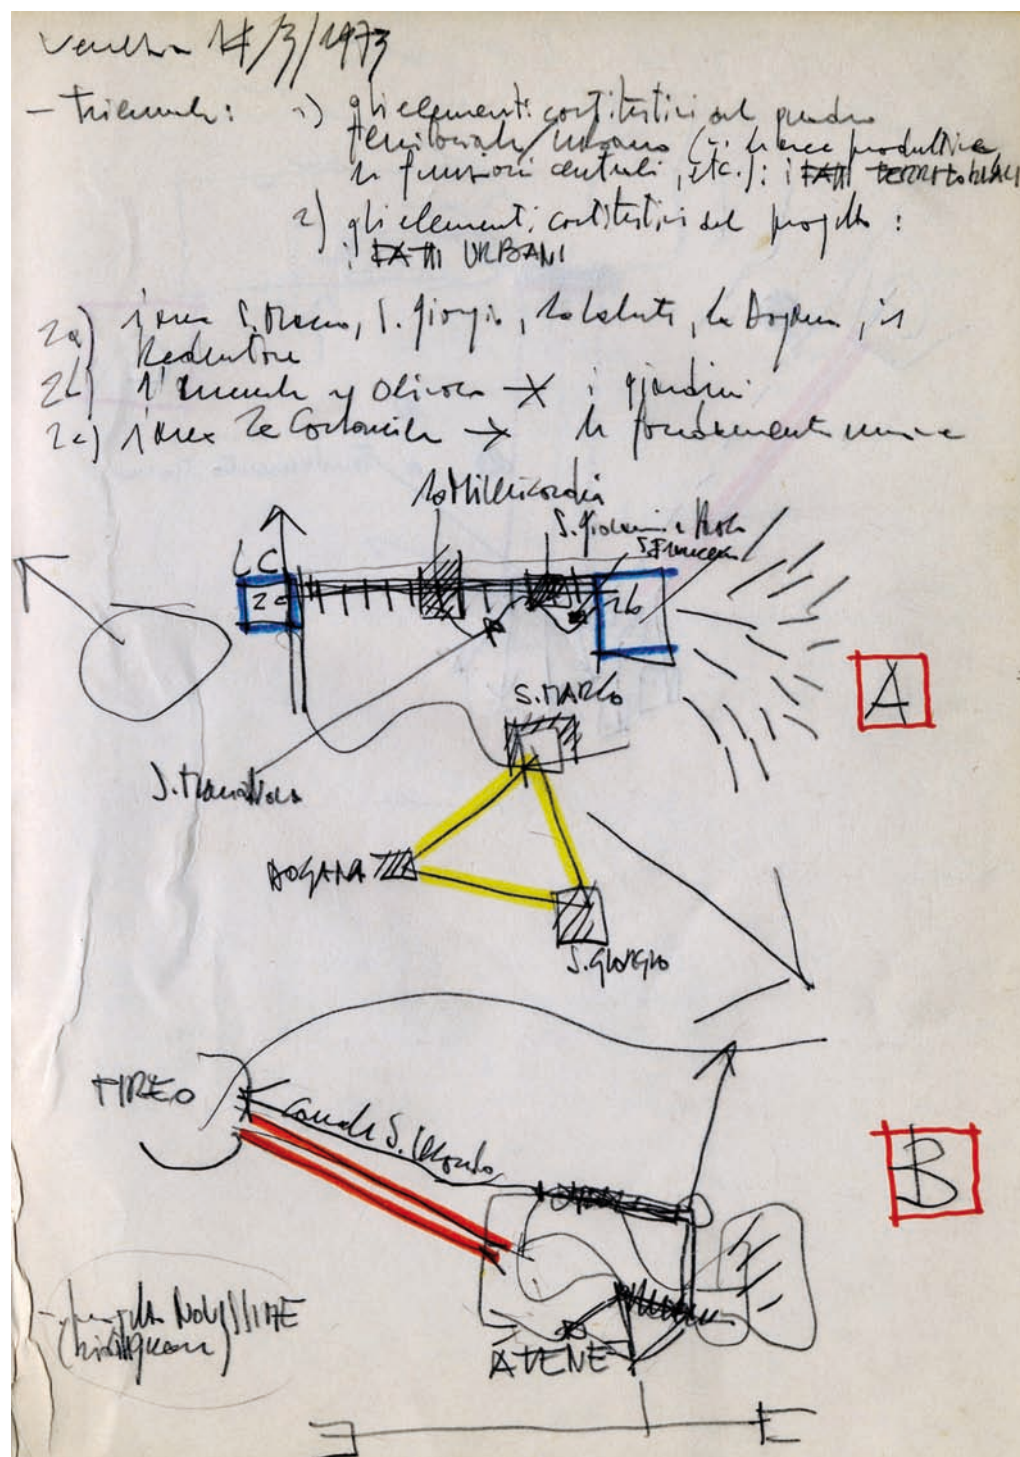 Venezia 17/3/1973
1) gli elementi costitutivi del quadro
territoriale/urbano ( le aree produttive,
le funzioni centrali, etc.): i FATTI TERRITORIALI
2) gli elementi costitutivi del progetto:
i FATTI URBANI
2a) l'area S. Marco, S. Giorgio, la Salute, la Dogana, il
Redentore
2b) l'Arsenale i giardini
2c) l'area → le fondamenta nuove
la Misericordia
S. Giovanni e Paolo
S. Francesco
LC
2c
2b
A
S. MARCO
DOGANA
S. GIORGIO
PIREO
canale S. Secondo
B
ATENE
- progetto NOVISSIME